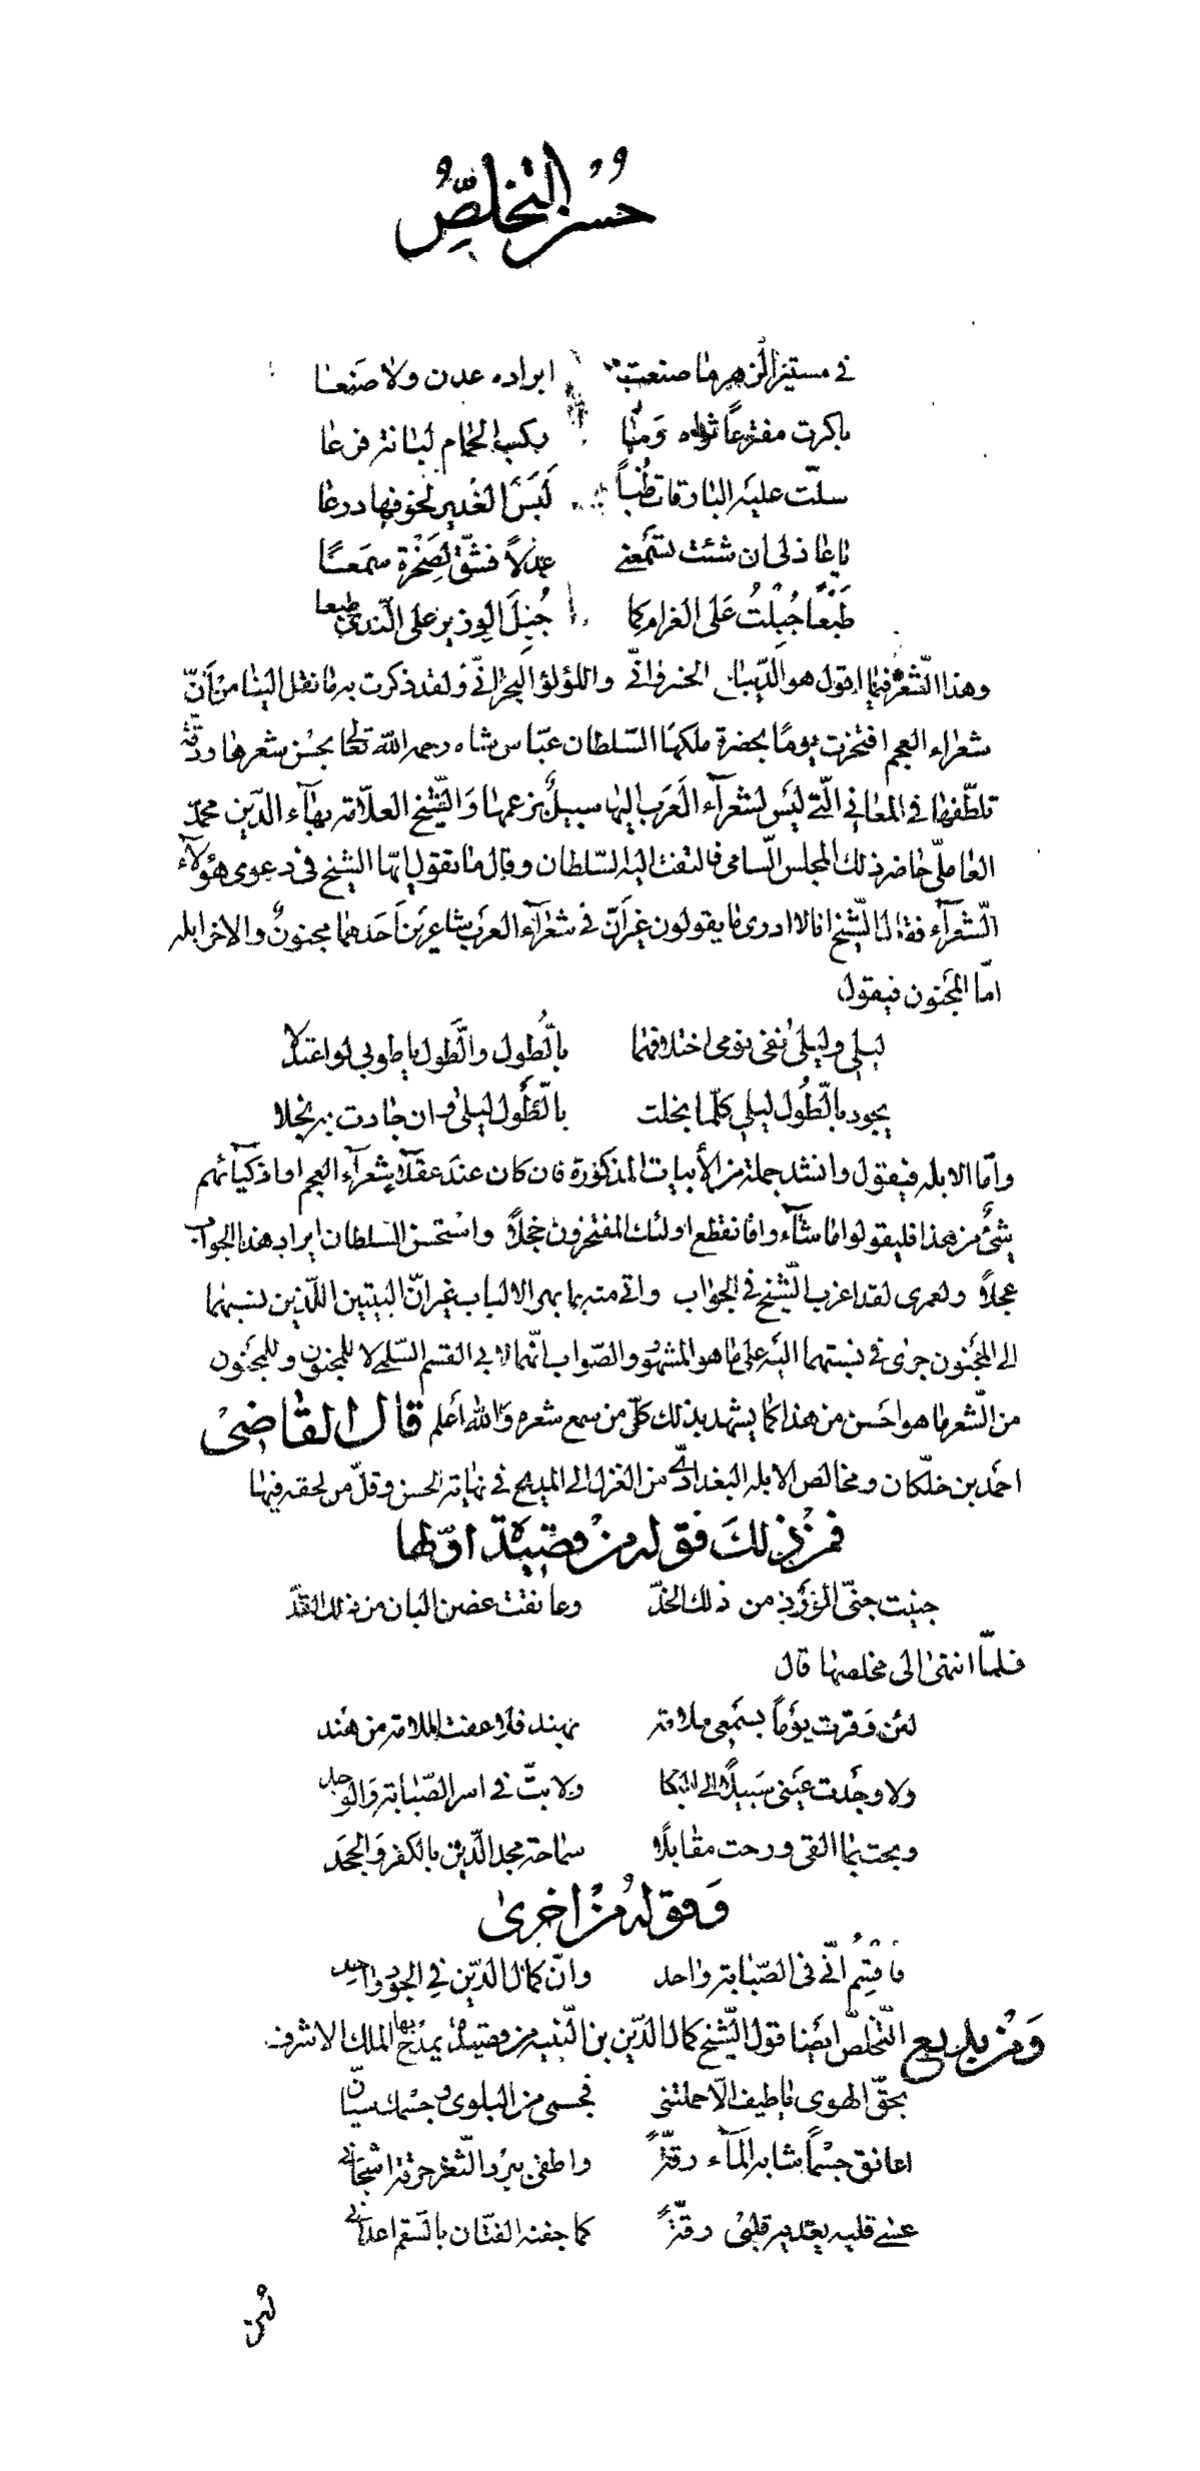 حُسْنُ التخلّصِ
في مستنير الزهر ما صنعت ابراده عدن ولا صَنعا
باكرت مفترعًا ثراه وَما بكت الحمام لبانة فرعا
سلّت عليه البارقات ظُباً لَبَسَ الغدير لخوفها درعا
يا عاذلى ان شئت تسمعنى عذلاً فشقّ لصَخْرَة سَمعًا
طَبْعًا جُبِلْتُ عَلى الغرام كما جُبِلَ الوزير على النّدى طبعا
وهذا الشعر فيما اقول هو الديباج الخسروانيّ واللؤلؤ البحرانيّ ولقد ذكرت به ما نقل الينا من أنّ
شعراء العجم افتخرت يومًا بحضرة ملكها السّلطان عبّاس شاه رحمه اللّه تعالى بحسْن شعرها ورقّة
تلطّفها في المعاني الّتي ليْس لشعرآء العَرَب اليها سبيلٌ بزعمها وَالشّيخ العلّامة بهآء الدّين محمّد
العامليّ حاضر ذلك المجلس السّامى فالتفت اليه السّلطان وقال ما تقول ايّها الشيخ فى دعوى هؤلآء
الشّعرآء فقال الشّيخ انا لا ادرى ما يقولون غير أنّ في شعرآء العرب شاعرين أحَدهما مجنونٌ والاخر ابله
امّا المجنون فيقول
ليلى وليلى نفى نومى اختلافهما بالطُّول والطَّول يا طوبى لو اعتدلا
يجود بالطُّول ليلى كلّما بخلت بالطَّول ليلى وان جادت به بخلا
وامّا الابله فيقول وانشد جملة من الأبيات المذكورة فان كان عند عقلآء شعرآء العجم او اذكيآئهم
شئٌ من هذا فليقولوا ما شآء وا فانقطع اولئك المفتخرون خجلًا واسْتحسن السلطان ايراد هذا الجواب
عجلًا ولعمرى لقد اغرب الشّيخ في الجواب واتى منه بما بهر الالباب غير انّ البيتين اللّذين نسبهما
الى المجنون جرى فى نسبتهما اليه على ما هو المشهور والصّواب انّهما لابى القسم السّلمى لا للمجنون وللمجنون
من الشّعر ما هو احسن من هذا كما يشهد بذلك كلّ من سمع شعره وَاللّه أعلم قال القاضىْ
احمد بن خلّكان ومخالص الابله البغداديّ من الغزل الى المديح في نهاية الحسن وقلّ من لحقه فيها
فمنْ ذلكَ قوله منْ قصيدة اوّلها
جنيت جنىّ الوَرْد من ذلك الخدّ وعانقت غصن البان من ذلك القدّ
فلمّا انتهى الى مخلصها قال
لئن وقرت يوْماً بسَمعى ملامة بهند فلا عفت الملامة من هَند
ولا وجَدت عيَنى سَبيلًا الى البكا ولا بتّ فى اسر الصّبابة وَالوجد
وبحت بما القى ورحت مقابلًا سماحة مجد الدّين بالكفر وَالجحَد
وَقوله منْ اخرى
فاقْسِمُ انّى فى الصّبابة واحد وانّ كمال الدّين في الجود واحد
وَمنْ بديع التّخلّص ايضا قول الشّيخ كمال الدّين بن النّبيه من قصيدة يمدح بها الملك الاشرف
بحقّ الهوى يا طيف الّا حملتنى فجسمى من البلوى وجسْمك سيّان
اعانق جسْماً شابه المآء رقّةً واطفى ببرْد الثّغر حرقة اشجانى
عسى قلبه يعديه قلبى رقّةً كما جفنه الفتّان بالسّقم اعدانى
لئن